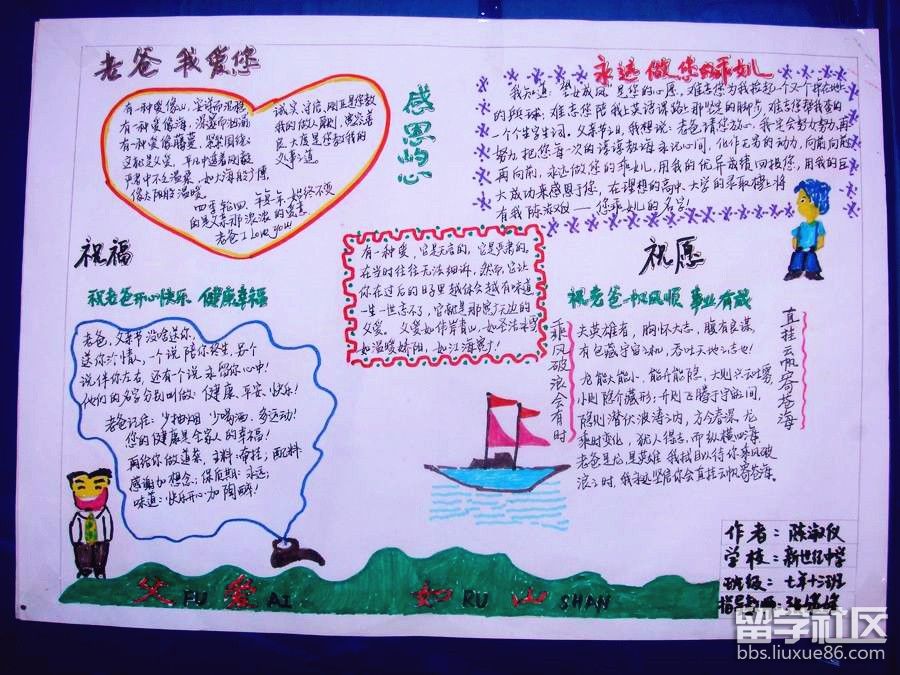 老爸 我爱您
有一种爱像山，坚强而沉稳
有一种爱像海，深邃而
有一种爱像藤蔓，紧紧围绕
这就是父爱，平凡中透着刚毅
严君中不乏温柔，如大海般
像太阳般温暖
诚实、守信、刚正是您教
我的做人原则，宽容善
良、大度是您教给我的
父亲之道。
四季轮回，年复一年，始终不变
的是父亲那浓浓的爱意
老爸 I Love you
感恩的心
永远做您的乖女儿
我知道，望女成凤是您的心愿，难忘您为我拾起一个又一个
的 球，难忘您陪我上英语课踏上那坚定的脚步，难忘您帮我
一个个生字生词，父亲节之日，我想说：老爸，请您放心，我定会努力努力再
努力，把您每一次的谆谆教诲永记心间，化作无穷的动力，向前向前
再向前，永远做您的乖女儿，用我的优异成绩回报您，用我的巨
大成功来感恩于您，在理想的高中、大学的录取榜上将
有我陈淑仪——您乖女儿的名字！
祝福
祝老爸开心快乐 健康幸福
老爸，父亲节没啥送你，
送你 个情人，一个说陪你终生，另个
说伴你左右，还有个说永留你心中！
他们的名字分别叫做：健康、平安、快乐！
老爸记住：少抽烟 少喝酒，多运动！
您的健康是全家人的幸福！
再给你做道菜，主料：牵挂，配料
感谢加想念；保质期：永远；
味道：快乐开心加陶醉！
有一种爱，它是无言的，它是严肃的，
在当时往往无法细诉，然而，它让
你在过后的日子里越体会越有味道
一生一世忘不了，它就是那宽广无边的
父爱。父爱如伟岸青山，如 冰雪
如温暖娇阳，如江海宽广！
祝愿
祝老爸一帆风顺 事业有成
乘风破浪会有时
直挂云帆寄苍海
夫英雄者，胸怀大志，腹有良谋，
有包藏宇宙之机，吞吐天地之志也！
龙能大能小，能升能隐，大则兴云吐雾，
小则隐介藏形；升则飞腾于宇宙间，
隐则潜伏波涛之内，方今春深，龙
乘时变化，犹人得志，而纵横四海
老爸是龙，是英雄，我拭目以待你乘风破
浪之时，我永远坚陪你会直挂云帆寄苍海。
父 FU 爱 AI 如 RU 山 SHAN
作者：陈淑仪
学校：新世纪中学
班级：七年十二班
指导教师
留学社区
bbs.liuxue86.com